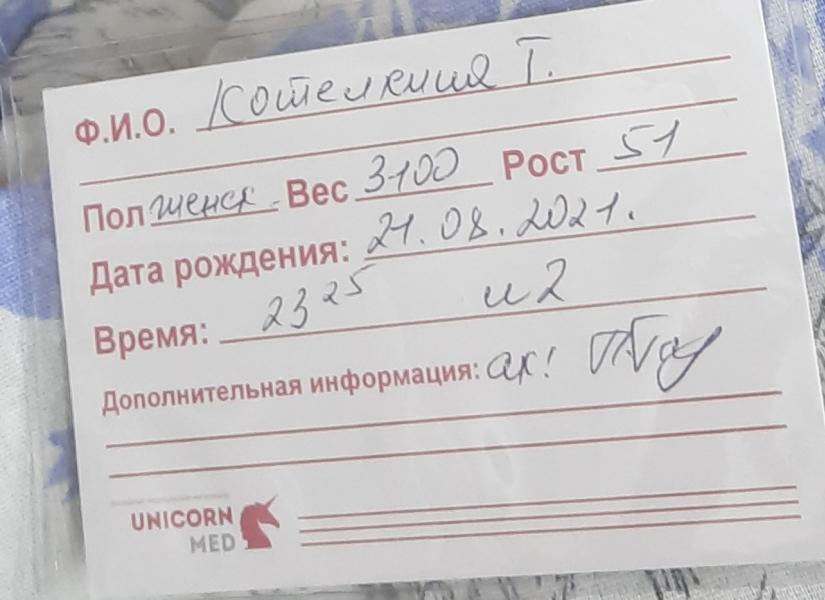 Ф.И.О. Котелкина Т.
Пол женск. Вес 3100 Рост 51
Дата рождения: 21.08.2021.
Время: 23 25 и2
Дополнительная информация: ак!
UNICORN
MED